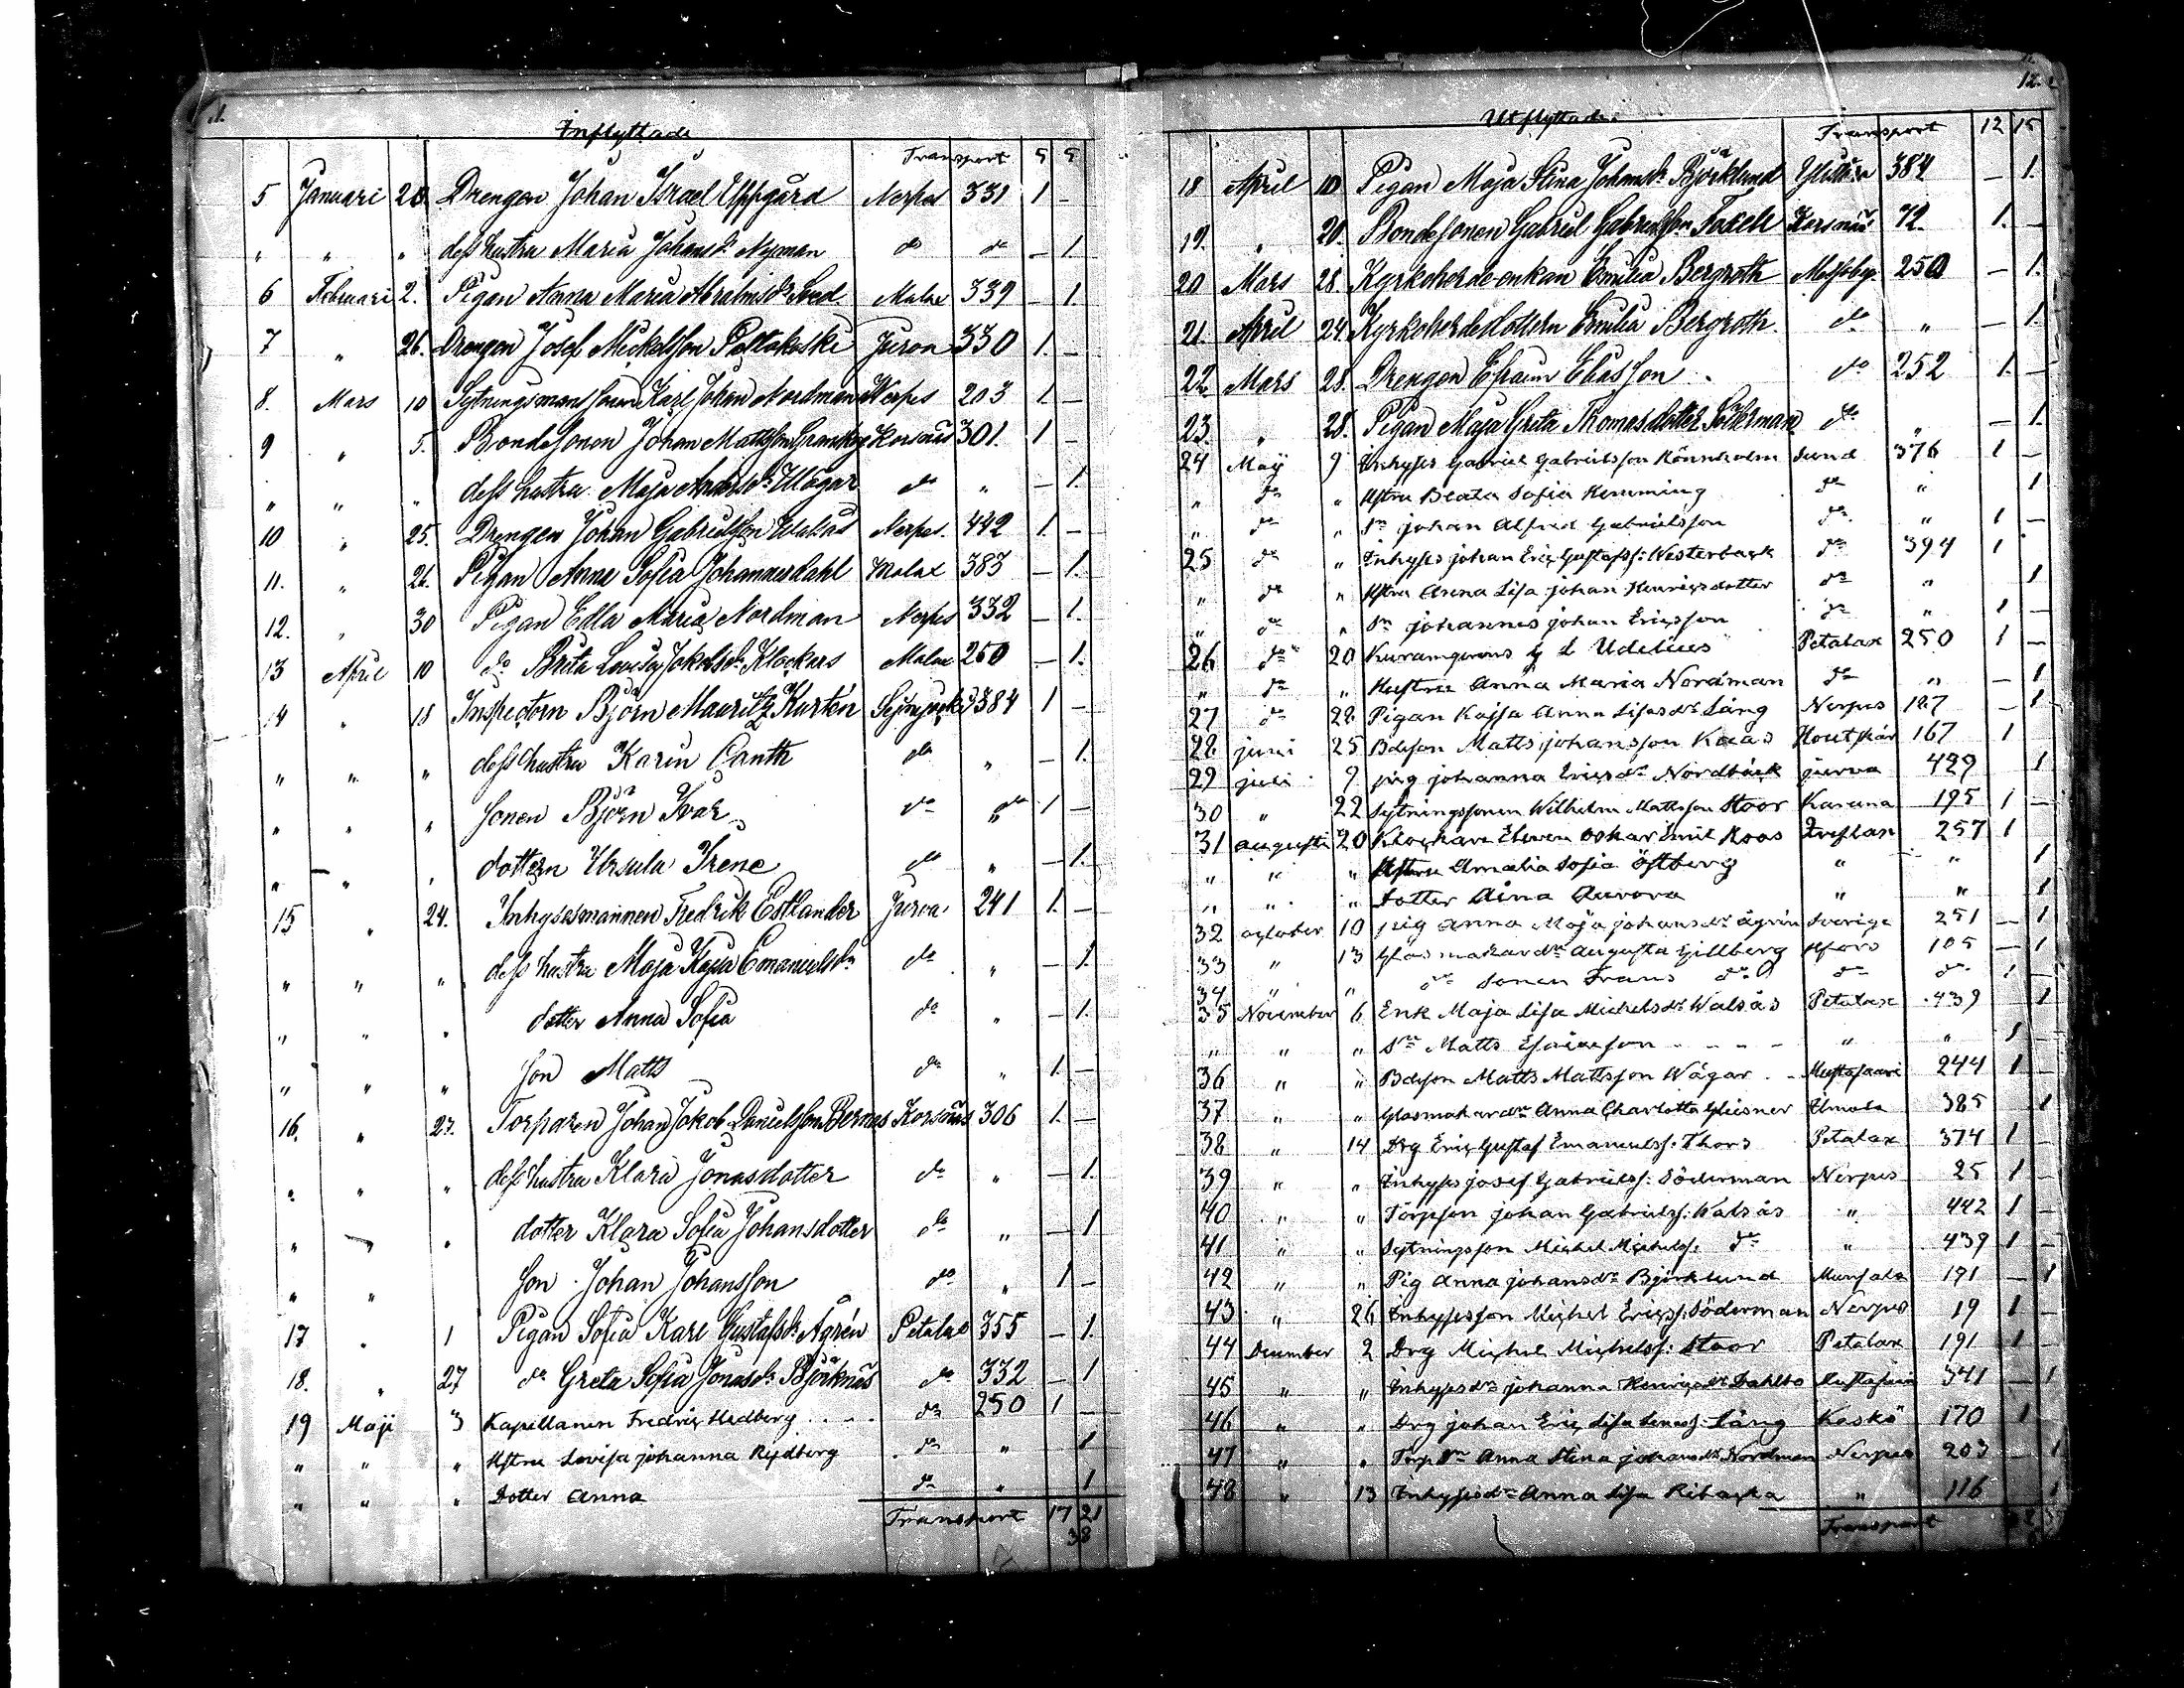 Inflyttade
Transport 5 5
5 Januari 28. Drengen Johan Israel Uppgård Nerpes 331 1 –
" " " dess hustru Maria Johansdr Nyman do do – 1.
6 Februari 2. Pigan Anna Maria Abrahmsdr Sved. Malax 339 – 1.
7 " 26. Drengen Josef Mickelsson Jurva 330 1. –
8. Mars 10 Sytningsmanssonen Karl Johan Nordman Nerpes 203 1 –
9 " 5. Bondesonen Johan Mattsson Granskog Korsnäs 301. 1 –
" " " dess hustru Maja Andersdr Wägar do " – 1.
10 " 25. Drengen Johan Gabrielsson Walsås Nerpes. 442 1. –
11. " 26. Pigan Anna Sofia Johannesdahl Malax 383 – 1.
12. " 30 Pigan Edla Maria Nordman Nerpes 332 – 1.
13 April 10 do Brita Lovisa Jakobsdr Klockars Malax 260 – 1.
14 " 18 Inspectorn Björn Mauritz Kurtén 384 1 –
" " " dess hustru Karin Canth do " – 1.
" " " sonen Björn Ivar do do 1 –
" " " dottern Ursula Irene do " – 1.
15 " 24. Inhysesmannen Fredrik Estlander Jurva 241 1. –
" " " dess hustru Maja Kajsa Emanuelsdr do " – 1.
" " " dotter Anna Sofia do " – 1.
" " " son Matts do " 1. –
16. " 27. Torparen Johan Jakob Danielsson Bernas Korsnäs 306 1. –
" " " dess hustru Klara Jonasdotter do " – 1.
" " " dotter Klara Sofia Johansdotter do " – 1
" " " son Johan Johansson do " 1 –
17 " 1 Pigan Sofia Karl Gustafsdr Ågrén Petalax 355 – 1.
18. " 27 do Greta Sofia Jonasdr Björknäs do 332 – 1
19 Maji 3 Kapellanen Fredrik Hedberg do 250 1 –
" " " Hstru Lovisa Johanna Rydberg do " 1
" " " Dotter Anna do " 1
Transport 17 21
38
12.
Utflyttade
Transport 12 15
18 April 10 Pigan Maja Stina Johansdr Björklund 384 – 1.
19. " 20. Bondesonen Gabriel Gabrielsson Korsnäs 72. 1. –
20 Mars 28. Kyrkoherde-enkan Emilia Bergroth 250 – 1.
21 April 24. Kyrkoherdedottern Emilia Bergroth. do " – 1.
22 Mars 28. Drengen Efraim Eliasson do 252 1. –
23. " 28. Pigan Maja Greta Thomasdotter Söderman do " – 1.
24 Maij 9 Inhyses Gabriel Gabrielsson Rönnholm Sund 376 1 –
" do " Hstru Beata Sofia Hemming do " 1
" do " Sn Johan Alfred Gabrielsson do " 1 –
25 do " Inhyses Johan Eric Gustafss: Westerback do 394 1
" do " Hstru Anna Lisa Johan Henricsdotter do " 1
" do " Sn Johannes Johan Ericsson do " 1 –
26 do 20 G L Udelius Petalax 250 1 –
" do " Hustru Anna Maria Nordman do " – 1
27 do 22 Pigan Kajsa Anna Lisasdr Lång Nerpes 127 – 1
28. juni 25 Bdeson Matts Johansson Kaas Houtskär 167 1
29 juli 9 pig Johanna Ericsdr Nordbäck jurva 429 1
30 " 22 Sytningssonen Wilhelm Mattsson Stoor 195 1 –
31 augusti 20 Klockare Eleven Oskar Emil Roos 257 1
" " " Hstru Amalia Sofia Östberg " " 1
" " " Dotter Aina Aurora " " 1
32 october 10 pig Anna Maja Johansdr Ågrén Sverige 251 – 1
33 " 13 Glasmakardr Augusta Gillberg Hfors 105 – 1
34 " " do Sonen Frans do do do 1 –
35 November 6 Enk Maja Lisa Michelsdr Walsås Petalax 439 1
" " " Sn Matts Esaiasson " " 1
36 " " Bdeson Matts Mattsson Wägar Mustasaari 244 1 –
37 " " Glasmakardr Anna Charlotta Gleisner Ilmola 385 1
38 " 14 Drg Eric Gustaf Emanuelss: Thors Petalax 374 1 –
39 " " Inhyses Josef Gabrielss: Söderman Nerpes 25 1
40 " " Torpson Johan Gabrielss: Walsås " 442 1
41 " " Sytningsson Michel Michelss: do " 439 1 –
42 " " Pig Anna Johansdr Björklund Munsala 191 – 1
43 " 26 Inhysesson Michel Ericss: Söderman Nerpes 19 1 –
44 December 2 Drg Michel Michelss: Stoor Petalax 191 1 –
45 " " Inhysesdr Johanna Henricsdr Dahlbo 341 – 1
46 " " Drg Johan Eric Lång Kaskö 170 1
47 " " Torp Anna Stina Johansdr Nordman Nerpes 203 1
48 " 13 Inhysesdr Anna Lisa Ribacka " 116 1
Transport